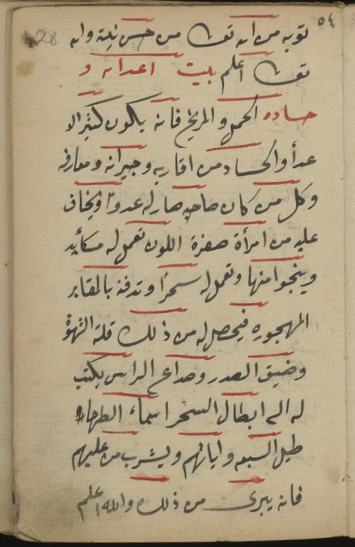 ٥٤
توبه من الله تعا من حسن نيته والله
تعا اعلم بيت اعدائه و
حساده الحمل والمريخ فانه يكون كثير الا
عدأ والحساد من اقاربه وجيرانه ومعارفه
وكل من كان صاحبه صار له عدوا ويخاف
عليه من امرأة صفرة اللون تعمل له مكأيد
وينجوا منها وتعمل له سحرا وتدفنه بالمقابر
المهجوره فيحصل له من ذلك قلة الشهوة
وضيق الصدر وصداع الراس يكتب
له الى ابطال السحر اسماء الطهاطيل
السبعه واياتهم ويشرب من عليهم
فانه يبرى من ذلك والله اعلم